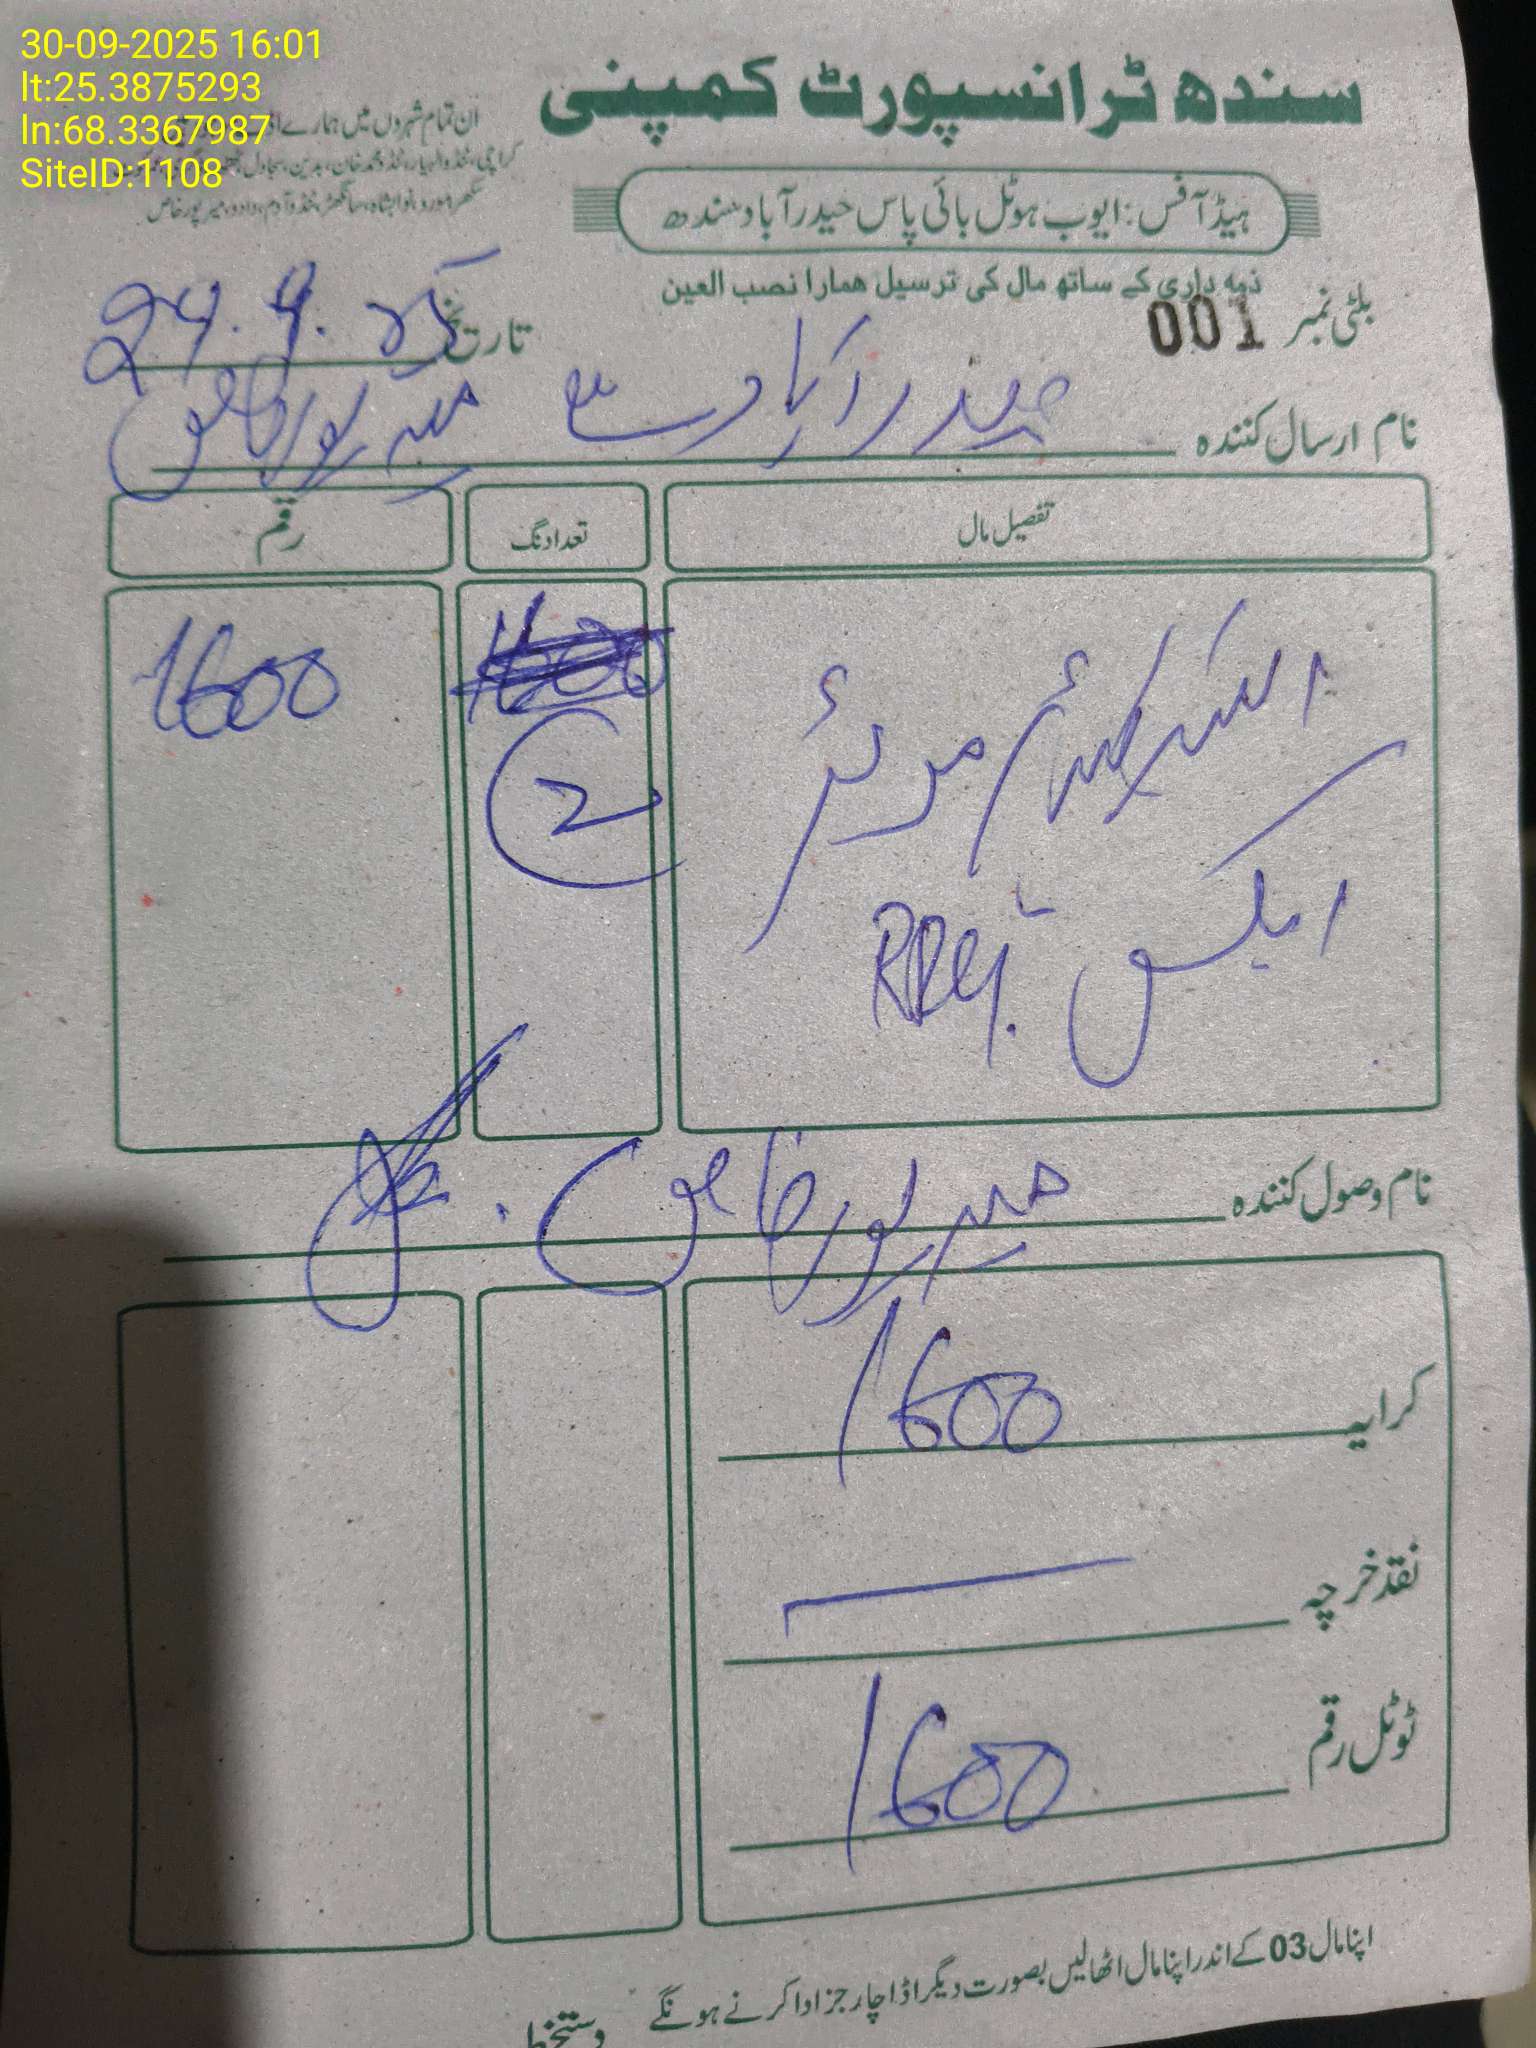 30-09-2025 16:01
lt:25.3875293
ln:68.3367987
SiteID:1108
سندھ ٹرانسپورٹ کمپنی
ان تمام شہروں میں ہمارے
کراچی، ٹنڈوالہیار، ٹنڈومحمدخان، بدین، سجاول،
سکھر، مورو، نوابشاہ، سانگھڑ، ٹنڈوآدم، دادو، میرپورخاص
ہیڈ آفس: ایوب ہوٹل بائی پاس حیدرآباد سندھ
ذمہ داری کے ساتھ مال کی ترسیل ہمارا نصب العین
بلٹی نمبر 001
تاریخ 24.9.25
نام ارسال کنندہ حیدرآباد سے میرپورخاص
تفصیل مال تعداد نگ رقم
1600
2
ایکس
نام وصول کنندہ میرپورخاص
کرایہ 1600
نقد خرچہ
ٹوٹل رقم 1600
اپنا مال 03 کے اندر اپنا مال اٹھالیں بصورت دیگر اڈا چارجز ادا کرنے ہونگے
دستخط